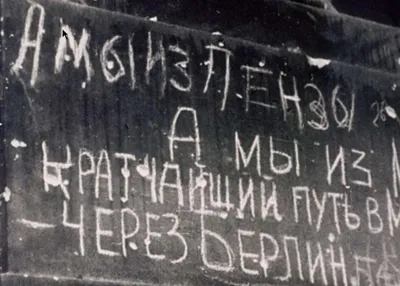 А МЫ ИЗ ПЕНЗЫ
А МЫ ИЗ
КРАТЧАЙШИЙ ПУТЬ В
— ЧЕРЕЗ БЕРЛИН.